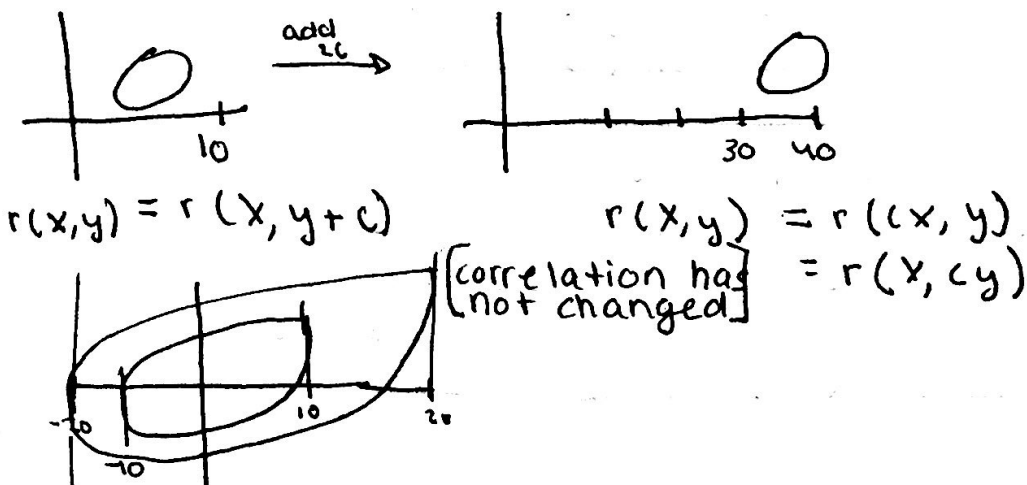 add
26
10
30 40
r(x,y) = r (x, y + c)
r(x,y) = r (cx, y)
= r (x, cy)
[correlation has
not changed]
-20
-10
10
20